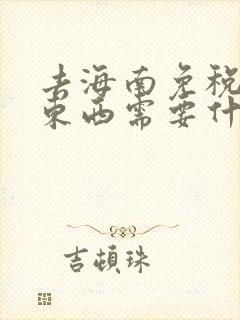 去海南免税
东西需要什
吉顿珠